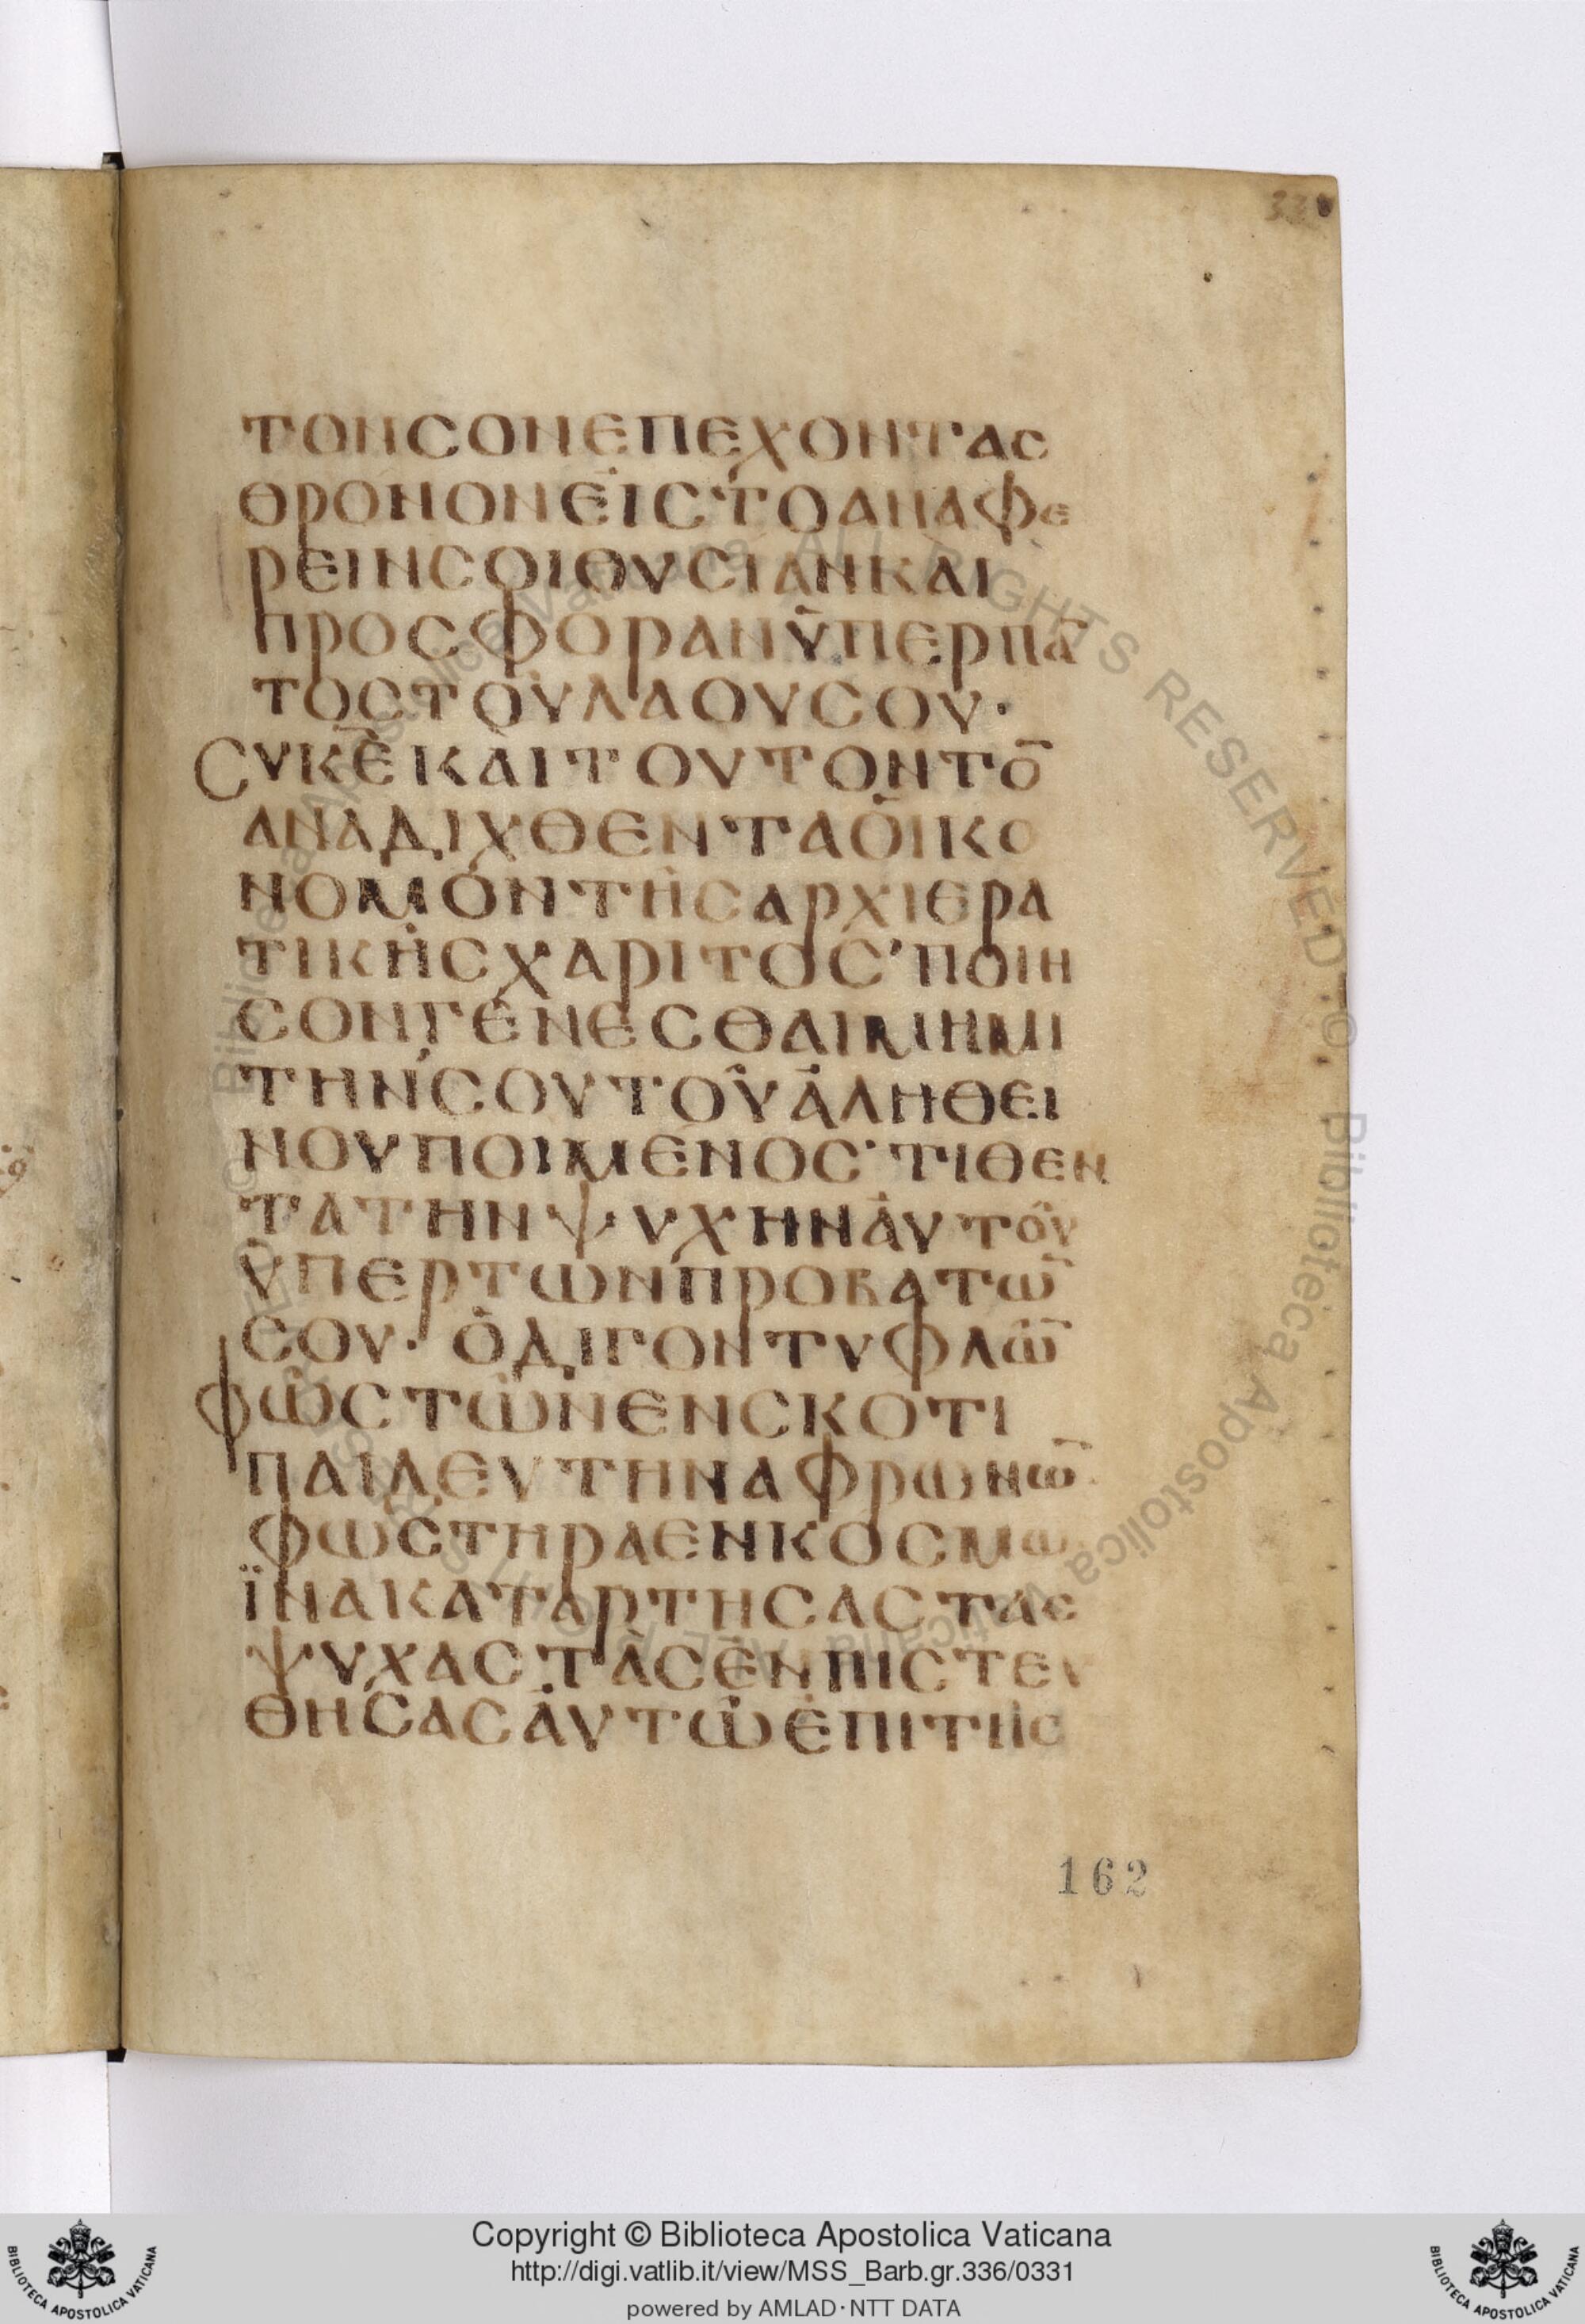 33
ΤΟΝϹΟΝΕΠΕΧΟΝΤΑϹ
ΘΡΟΝΟΝΕΙϹΤΟΑΝΑΦΕ
ΡΕΙΝϹΟΙΘΥϹΙΑΝΚΑΙ
ΠΡΟϹΦΟΡΑΝΥΠΕΡΠΑ̅
ΤΟϹΤΟΥΛΑΟΥϹΟΥ·
ϹΥΚ̅Ε̅ΚΑΙΤΟΥΤΟΝΤΟ̅
ΑΝΑΔΙΧΘΕΝΤΑΟΙΚΟ
ΝΟΜΟΝΤΗϹΑΡΧΙΕΡΑ
ΤΙΚΗϹΧΑΡΙΤΟϹ’ΠΟΙΗ
ϹΟΝΓΕΝΕϹΘΑΙΜΙΗΜΙ
ΤΗΝϹΟΥΤΟΥΑΛΗΘΕΙ
ΝΟΥΠΟΙΜΕΝΟϹ·ΤΙΘΕΝ
ΤΑΤΗΝΨΥΧΗΝΑΥΤΟΥ
ΥΠΕΡΤΩΝΠΡΟΒΑΤΩ̅
ϹΟΥ· ΟΔΙΓΟΝΤΥΦΛΩ̅
ΦΩϹΤΩΝΕΝϹΚΟΤΙ
ΠΑΙΔΕΥΤΗΝΑΦΡΩΝΩ̅
ΦΩϹΤΗΡΑΕΝΚΟϹΜΩ
ΪΝΑΚΑΤΑΡΤΗϹΑϹΤΑϹ
ΨΥΧΑϹΤΑϹΕΝΠΙϹΤΕΥ
ΘΗϹΑϹΑΥΤΩΕΠΙΤΗϹ
162
© Biblioteca Apostolica Vaticana ALL RIGHTS RESERVED
© Biblioteca Apostolica Vaticana ALL RIGHTS RESERVED
BIBLIOTECA APOSTOLICA VATICANA
Copyright © Biblioteca Apostolica Vaticana
http://digi.vatlib.it/view/MSS_Barb.gr.336/0331
powered by AMLAD·NTT DATA
BIBLIOTECA APOSTOLICA VATICANA